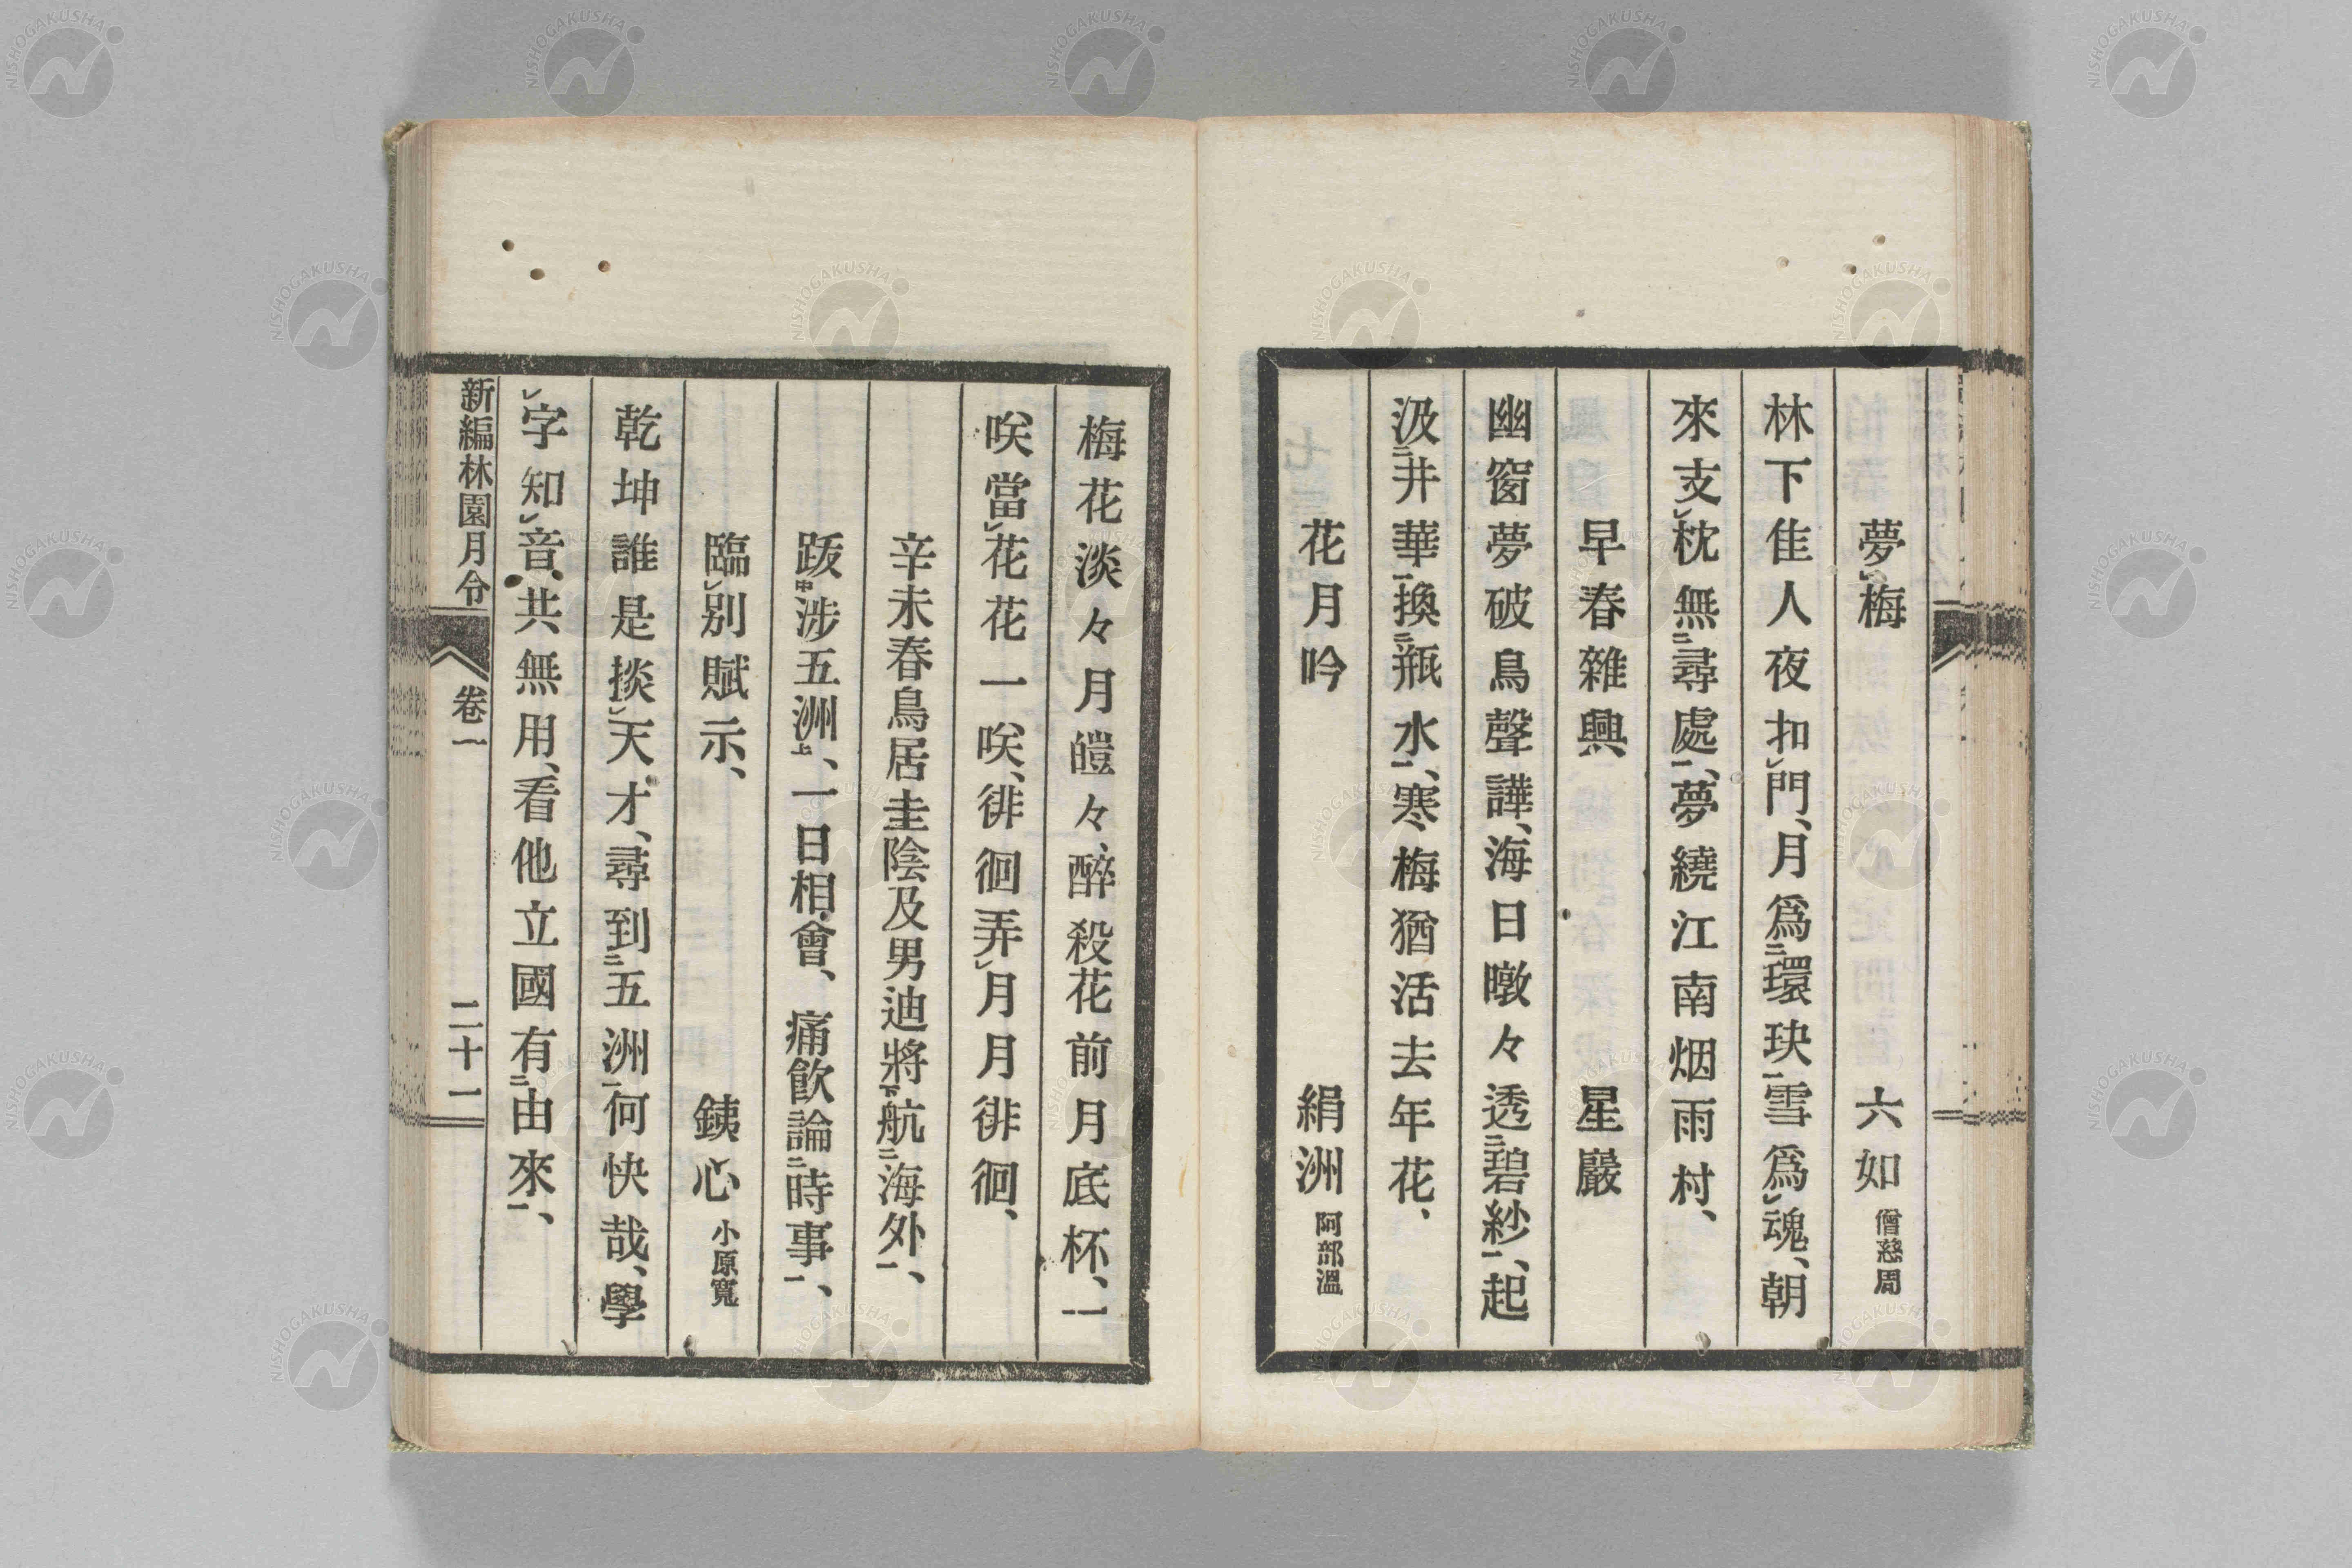 夢㆑梅　六如 僧慈周
林下佳人夜扣㆑門、月爲㆓環玦㆒雪爲㆑魂、朝
來支㆑枕無㆓尋處㆒、夢繞江南烟雨村、
早春雜興　星巖
幽窗夢破鳥聲譁、海日暾々透㆓碧紗㆒、起
汲㆓井華㆒換㆓瓶水㆒、寒梅猶活去年花、
花月吟　絹洲 阿部溫
梅花淡々月皚々、醉殺花前月底杯、一
咲當㆑花花一咲、徘徊弄㆑月月徘徊、
辛未春鳥居圭陰及男迪將㆘航㆓海外㆒、
跋㆗涉五洲㆖、一日相會、痛飮論㆓時事㆒、
臨㆑別賦示、　銕心 小原寬
乾坤誰是掞㆑天才、尋到㆓五洲㆒何快哉、學
㆑字知㆑音、共無用、看他立國有㆓由來㆒、
新編林園月令　卷一　二十二
NISHOGAKUSHA